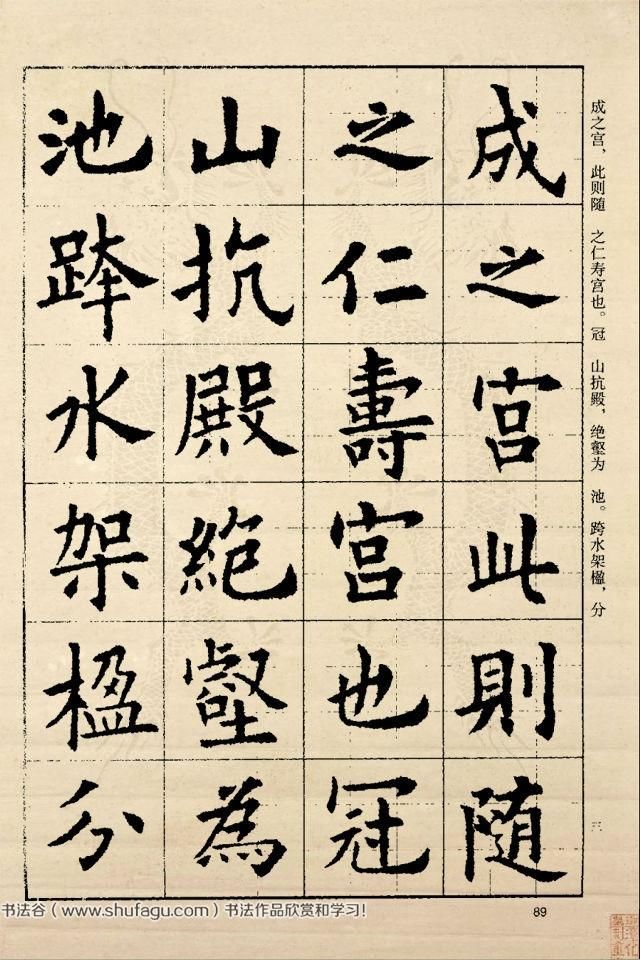 成之宫此則随
之仁壽宫也冠
山抗殿絶壑為
池跨水架楹分
成之宫，此则随 之仁寿宫也。冠 山抗殿，绝壑为 池。跨水架楹，分
89
书法谷（www.shufagu.com）书法作品欣赏和学习！